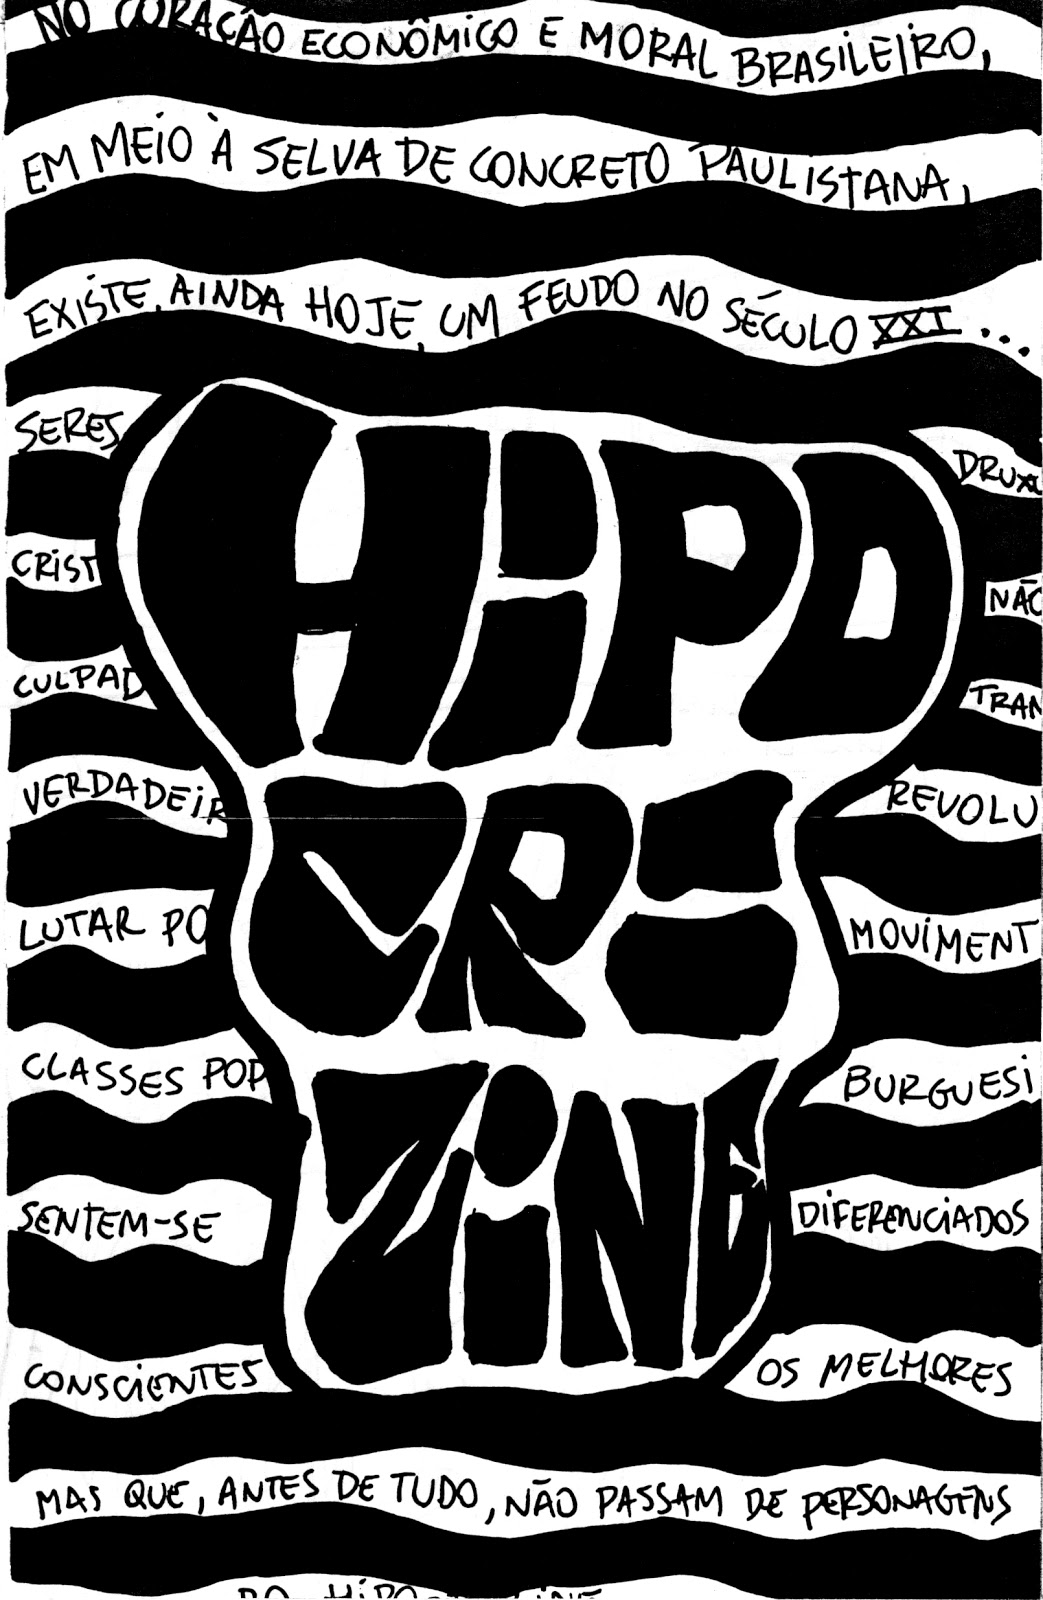 NO CORAÇÃO ECONÔMICO E MORAL BRASILEIRO,
EM MEIO À SELVA DE CONCRETO PAULISTANA,
EXISTE, AINDA HOJE, UM FEUDO NO SÉCULO XXI ...
HiPO
CRi
ZiNE
SERES
CRIST
CULPAD
VERDADEIR
LUTAR PO
CLASSES POP
SENTEM-SE
CONSCIENTES
NÃO
TRAN
REVOLU
MOVIMENT
BURGUESI
DIFERENCIADOS
OS MELHORES
MAS QUE, ANTES DE TUDO, NÃO PASSAM DE PERSONAGENS